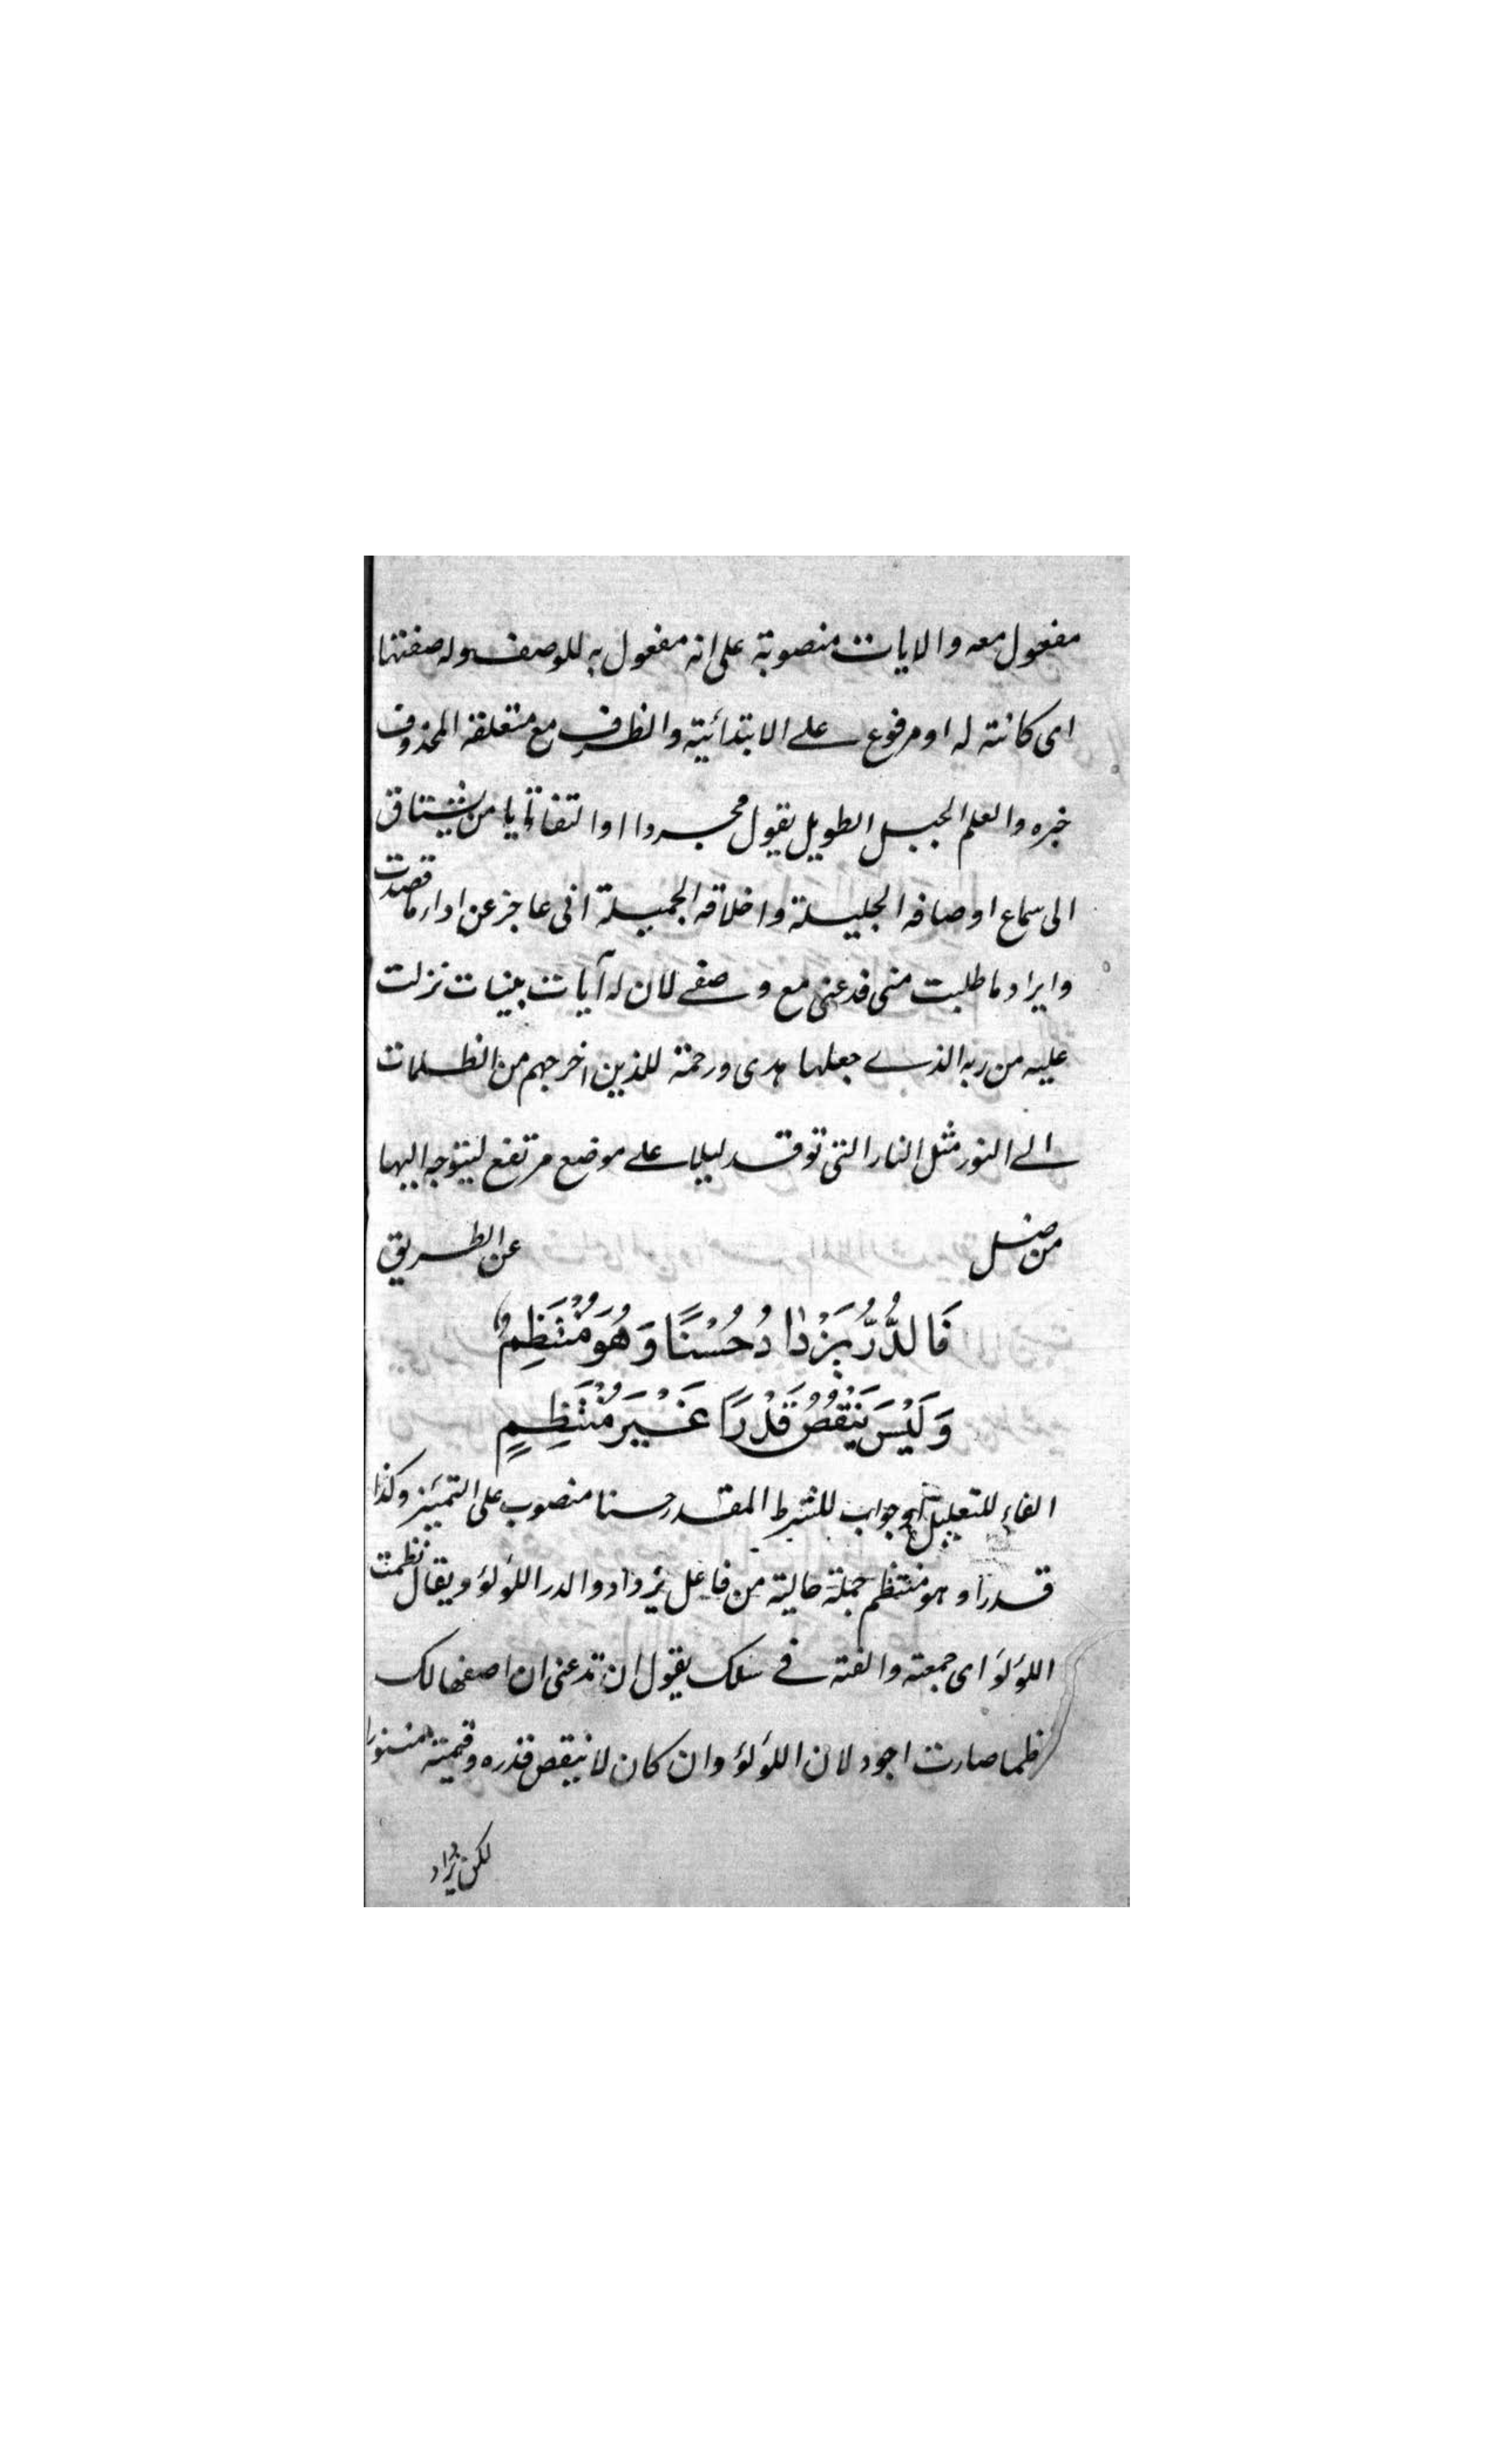 مفعول معه والايات منصوبة على انه مفعول به للوصف وله صفتها
اى كائنة له او مرفوع على الابتدائية والظرف مع متعلقه المحذوف
خبره والعلم الجبل الطويل يقول مجردا او التفاتا يا من يشتاق
الى سماع اوصافه الجليلة واخلاقه الجميلة انى عاجز عن اداء ما قصدت
وايراد ما طلبت منى فدعنى مع وصفى لان له آيات بينات نزلت
عليه من ربه الذى جعلها هدى ورحمة للذين اخرجهم من الظلمات
الى النور مثل النار التى توقد ليلا على موضع مرتفع ليتوجه اليها
من ضل عن الطريق
فَالدُّرُّ يَزْدَادُ حُسْنًا وَهُوَ مُنْتَظِمٌ
وَلَيْسَ يَنْقُصُ قَدْرًا غَيْرَ مُنْتَظِمٍ
الفاء للتعليل او جواب للشرط المقدر حسنا منصوب على التمييز وكذا
قدرا وهو منتظم جملة حالية من فاعل يزداد والدر اللؤلؤ ويقال نظمت
اللؤلؤ اى جمعته والفته فى سلك يقول ان تدعنى ان اصفها لك
نظما صارت اجود لان اللؤلؤ وان كان لا ينقص قدره وقيمته منثورا
لكن يزاد